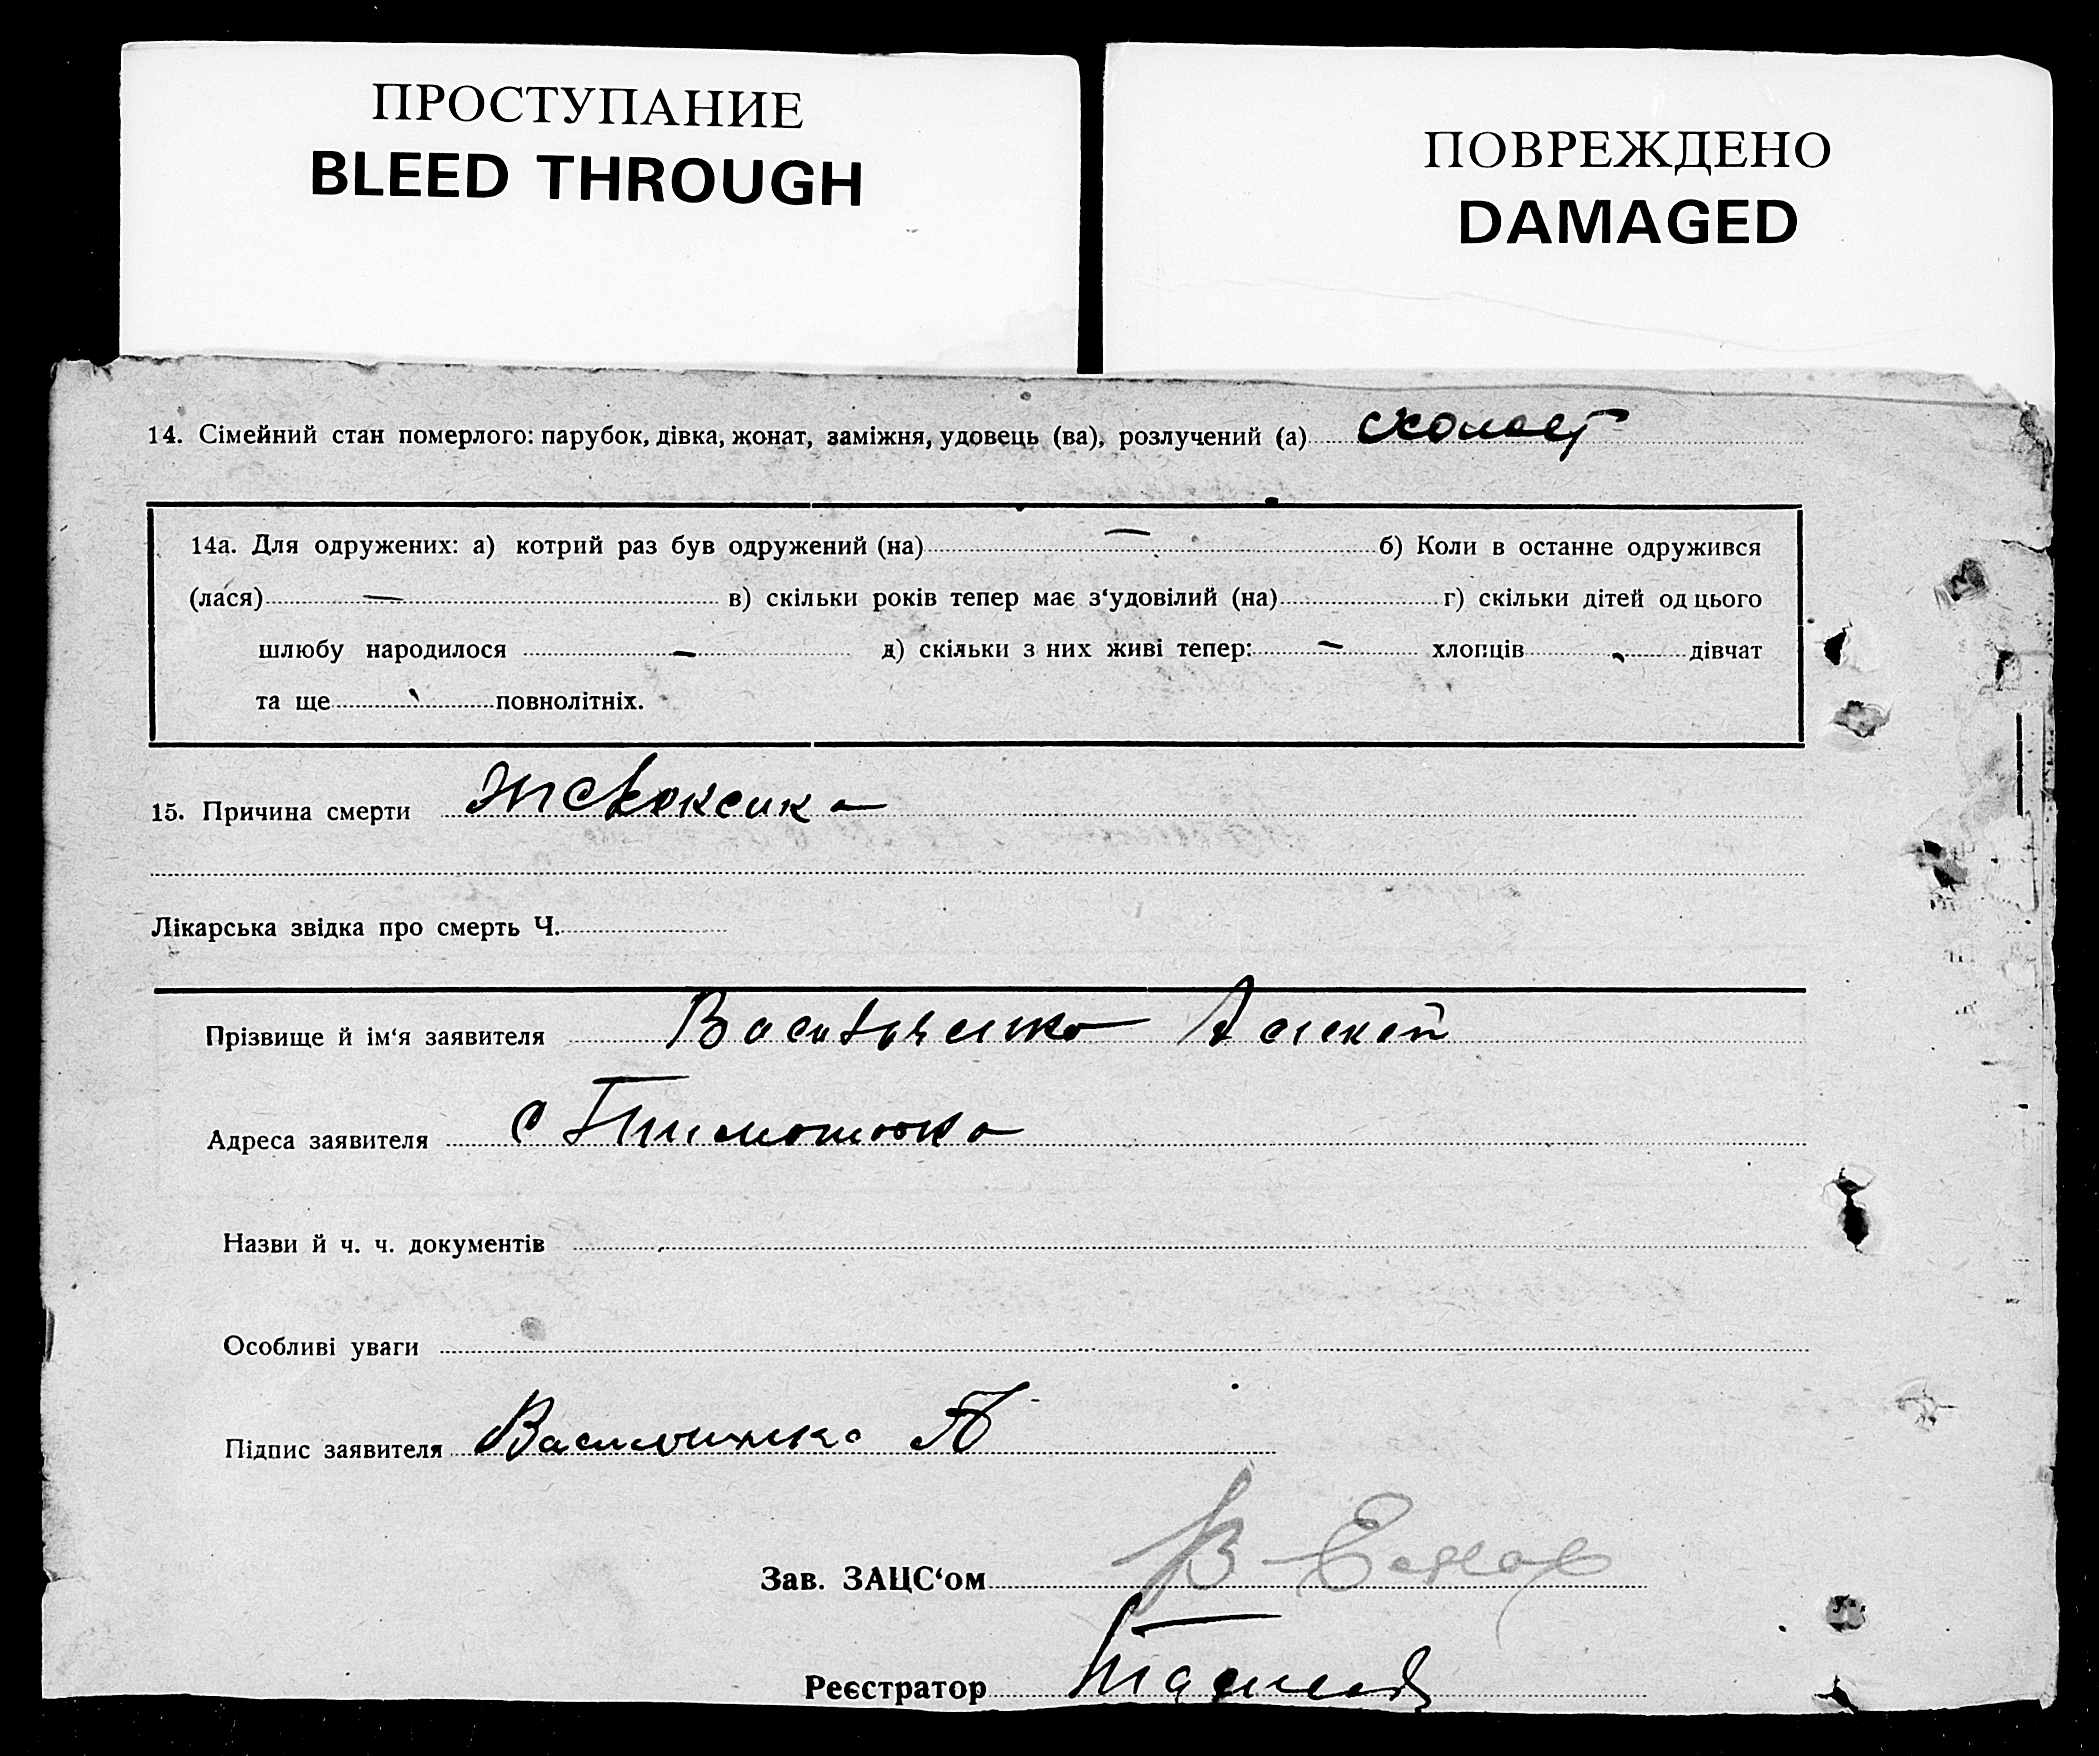 ПРОСТУПАНИЕ
BLEED THROUGH
ПОВРЕЖДЕНО
DAMAGED
14. Сімейний стан померлого: парубок, дівка, жонат, заміжня, удовець (ва), розлучений (а)
14а. Для одружених: а) котрий раз був одружений (на) — б) Коли в останне одружився
(лася) — в) скільки років тепер має з‘удовілий (на) г) скільки дітей од цього
шлюбу народилося — д) скільки з них живі тепер: — хлопців дівчат
та ще повнолітніх.
15. Причина смерти
Лікарська звідка про смерть Ч.
Прізвище й ім‘я заявителя
Адреса заявителя с
Назви й ч. ч. документів
Особливі уваги
Підпис заявителя
Зав. ЗАЦС‘ом
Реєстратор